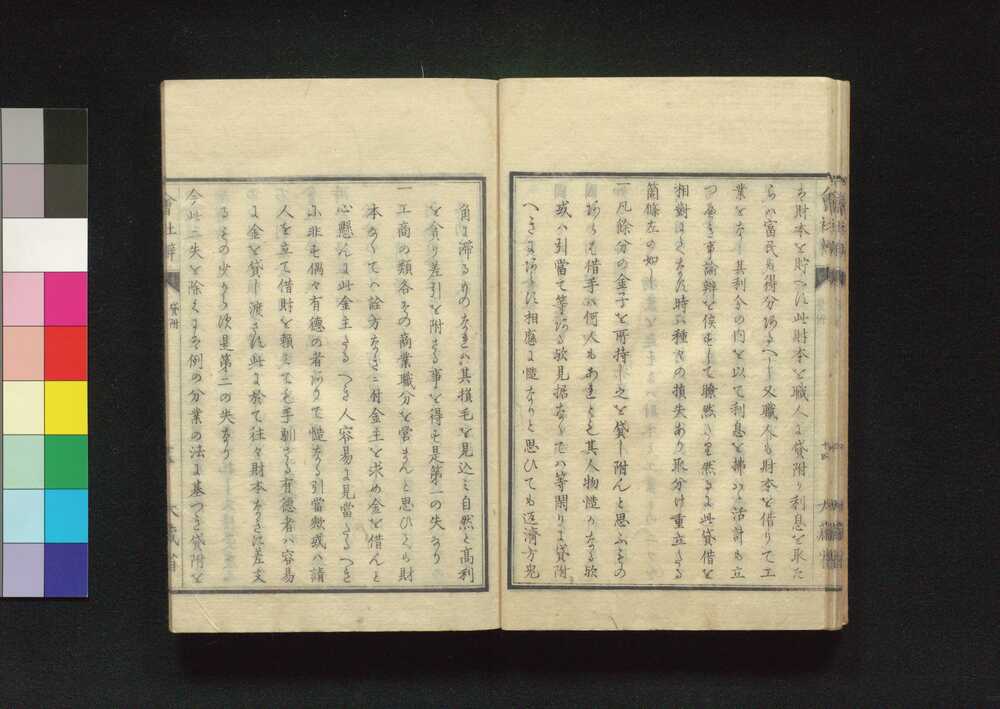 ち財本を貯へハ此財本を職人よ貸附り利息を取た
らハ富民も得分あるへし又職人も財本を借りて工
業をなし其利金の内を以て利息を拂ハヽ活計も立
つへき事論辨を俟すして瞭然さり然るよ此貸借を
相對よてなす時ハ種々の損失あり取分け重立さる
箇條左の如し
一凡餘分の金子を所持し之を貸し附んと思ふもの
ありても借手ハ何人もあれとも其人物慥かなる歟
或ハ引當て等ある歟見据なくてハ等閑りよ貸附
へきよあらす相應よ慥なりと思ひても返濟方兎
角よ滞るものなれハ其損毛を見込ミ自然と高利
を貪り差引を附さる事を得す是第一の失なり
一工商の類各その商業職分を營まんと思ひても財
本なくてハ詮方なき故財金主を求め金を借んと
心懸んよ此金主さるへき人容易よ見當さるへき
ふ非す偶々有徳の者ありて慥なる引當歟或ハ請
人を立て借財を頼ミても手馴さる有徳者ハ容易
よ金を貸し渡さす此よ於て往々財本なき故差支
るもの少からす是第二の失なり
今此二失を除くよハ例の分業の法よ基つき貸附を
會社辨
貸附
大藏省